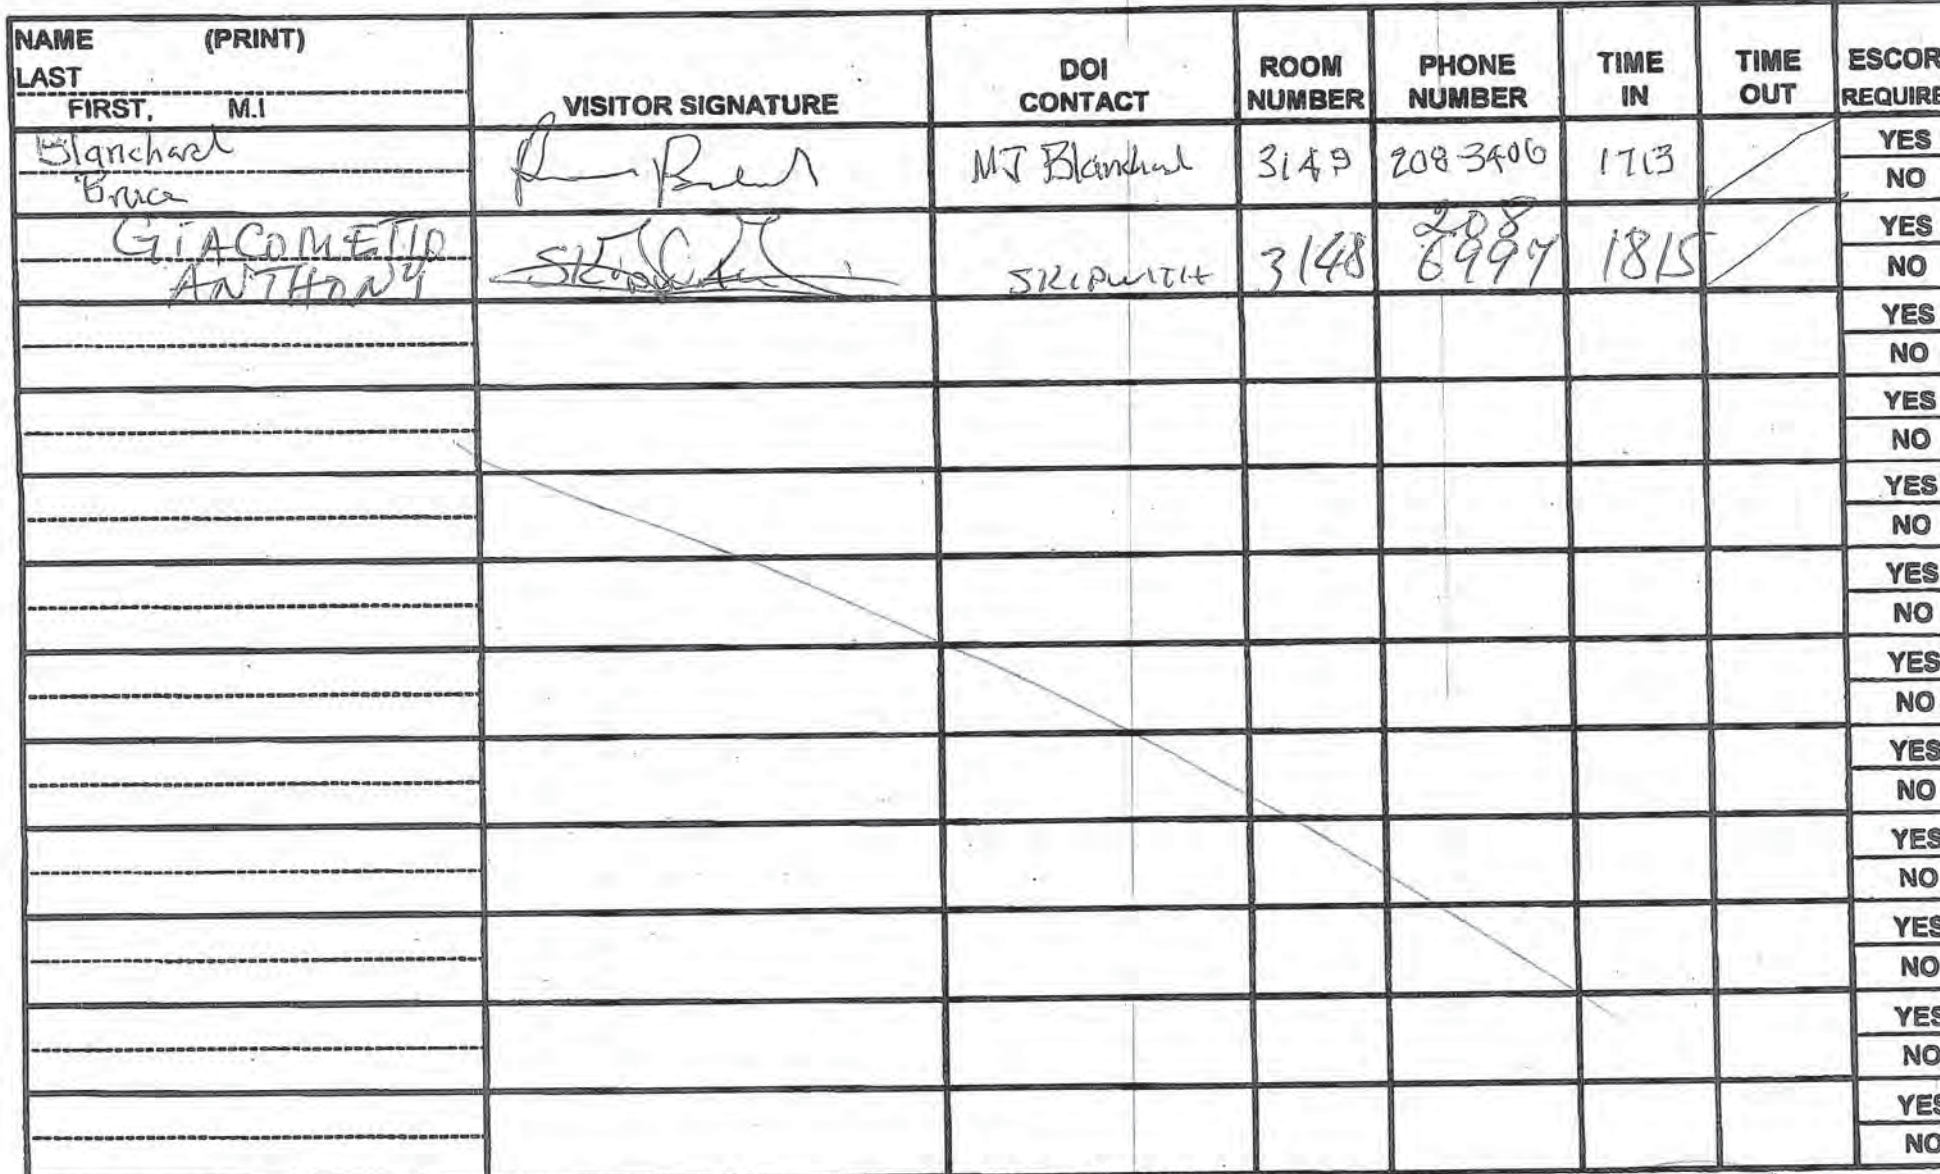 NAME (PRINT)
LAST
FIRST, M.I
VISITOR SIGNATURE
DOI
CONTACT
ROOM
NUMBER
PHONE
NUMBER
TIME
IN
TIME
OUT
ESCOR
REQUIRE
Blanchard
Bruce
MJ Blanchard
3149
208-3406
1713
YES
NO
GIACOMETTO
ANTHONY
SKIPWITH
3148
208
1815
YES
NO
YES
NO
YES
NO
YES
NO
YES
NO
YES
NO
YES
NO
YES
NO
YES
NO
YES
NO
YES
NO